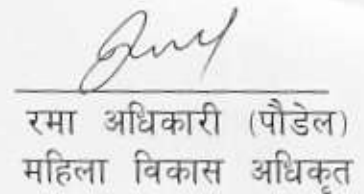 रमा अधिकारी (पौडेल)
महिला विकास अधिकृत